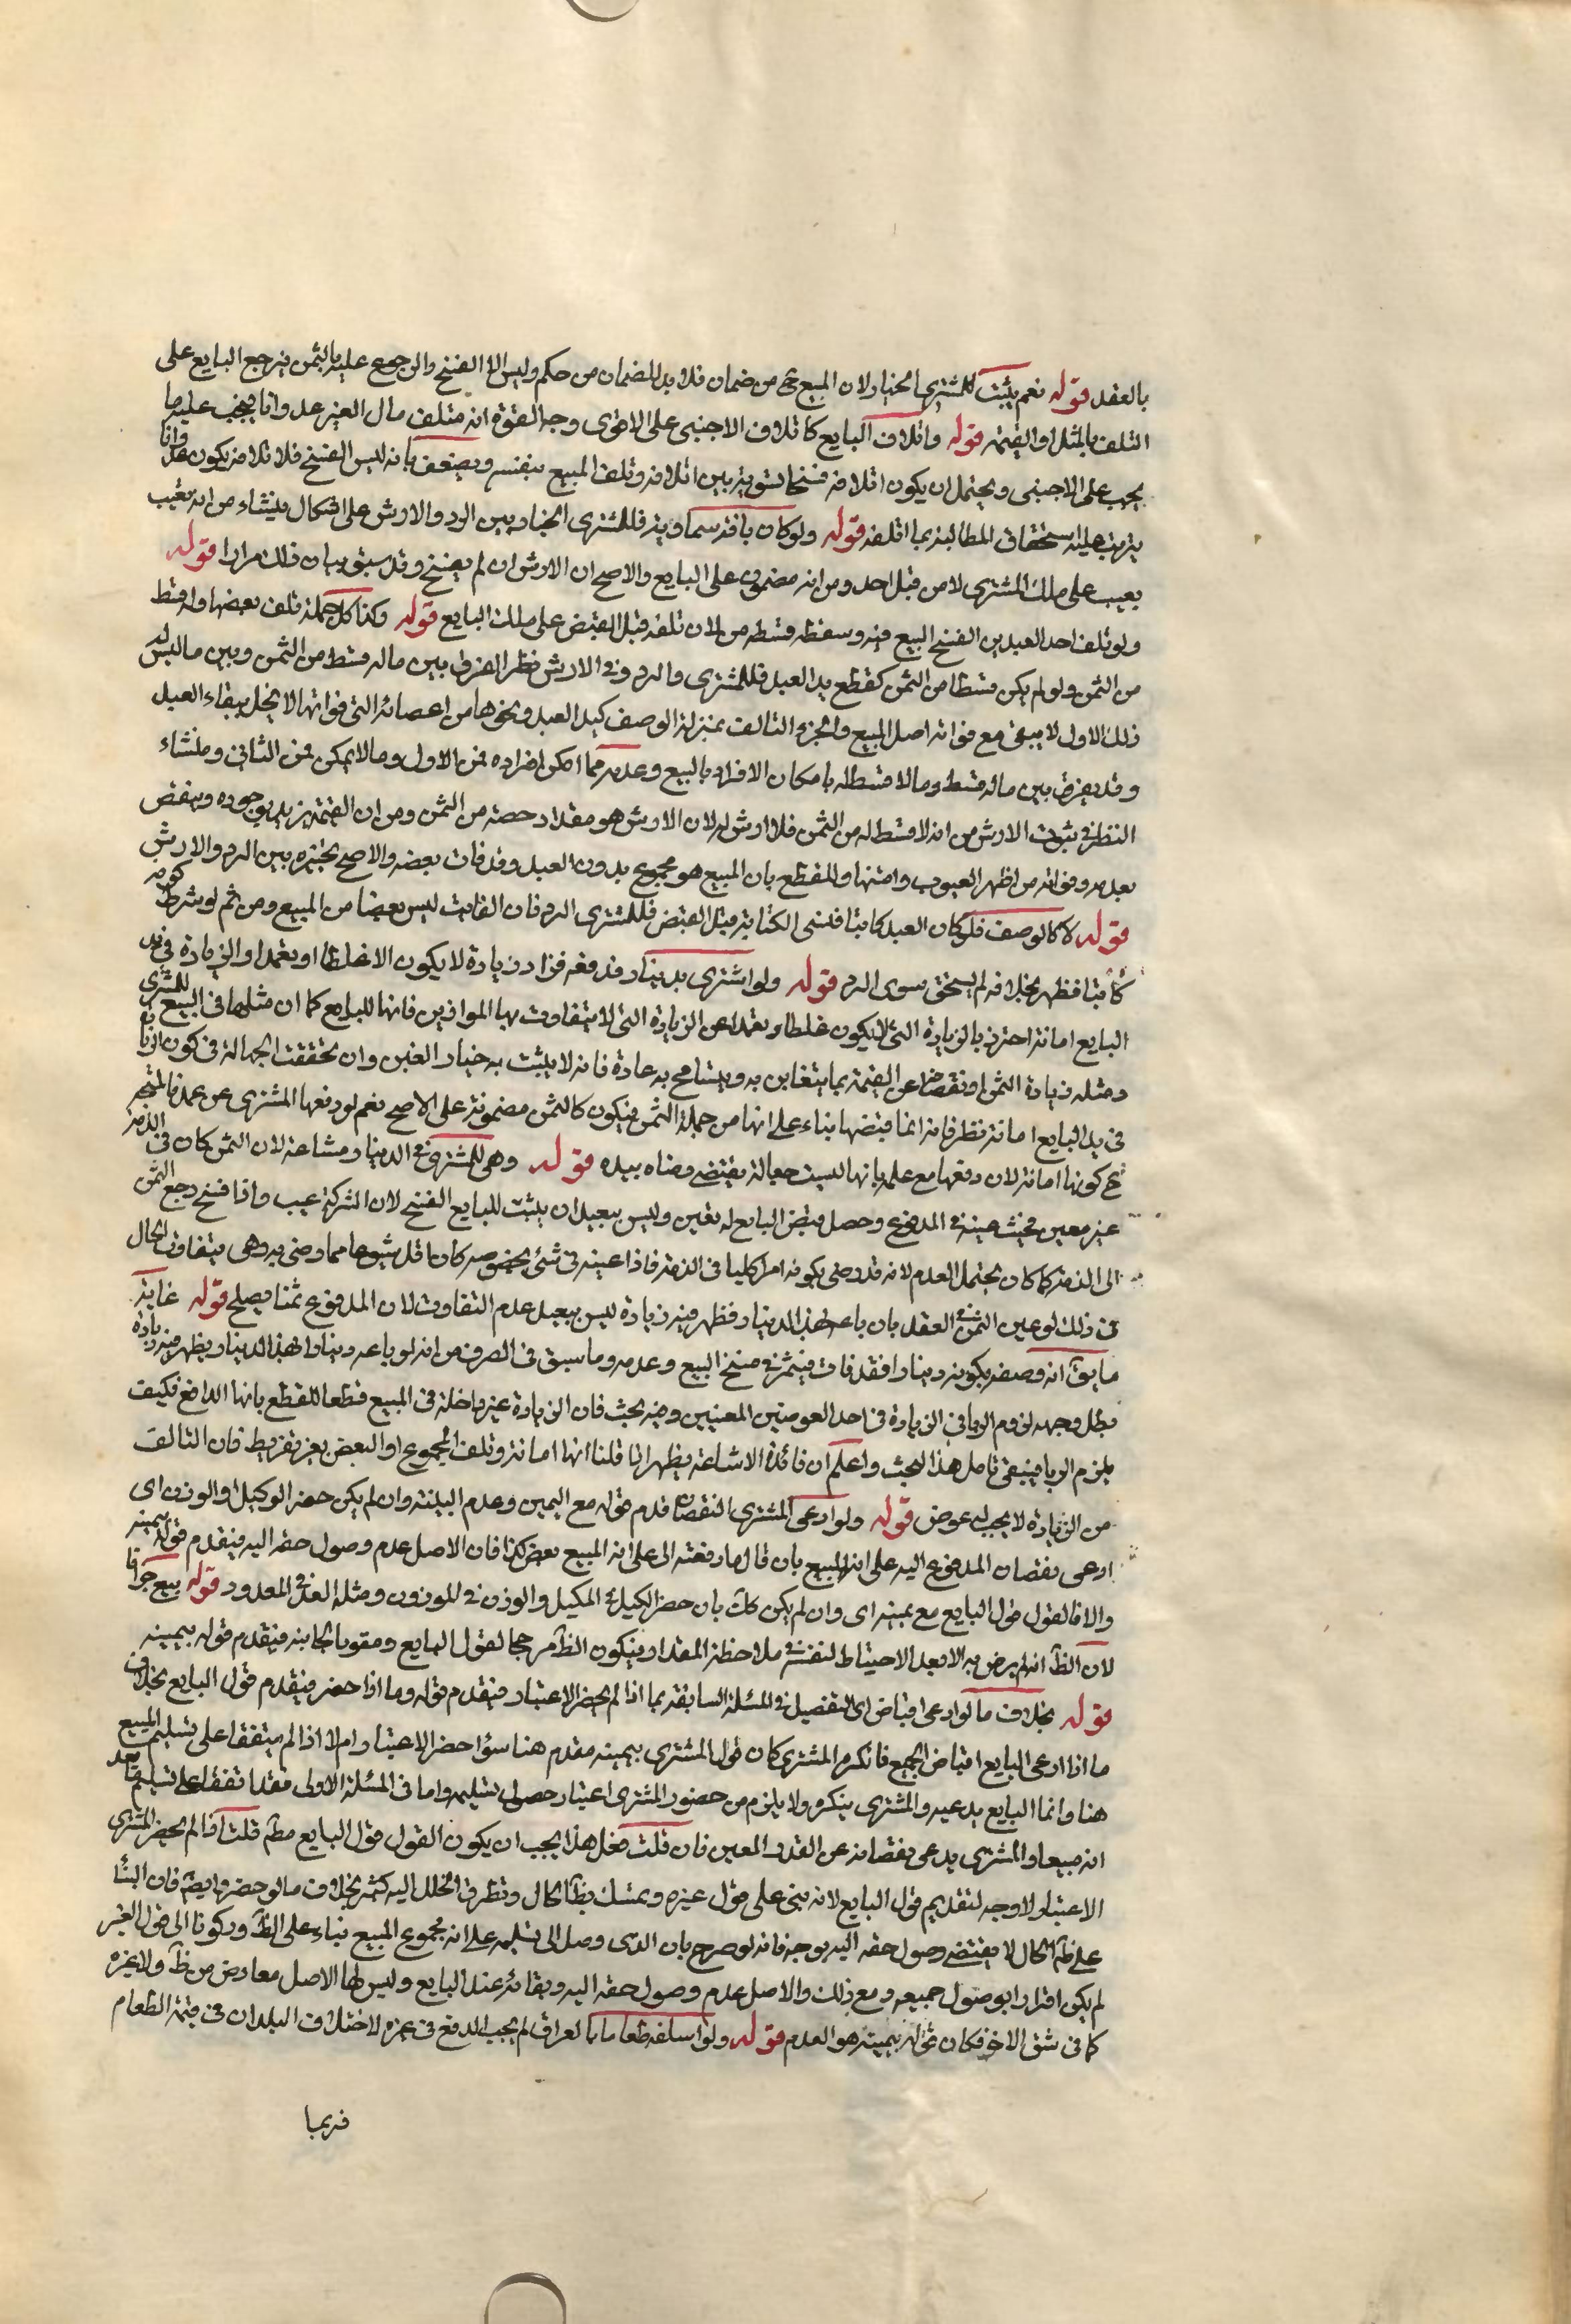 بالعقد قوله نعم يثبت للمشتري الخيار لان المبيع ح من ضمان فلا بد للضمان من حكم وليس الا الفسخ والرجوع عليه بالثمن فيرجع البايع على
التلف بالمثل او القيمة قوله واتلاف البايع كاتلاف الاجنبي على الاقوى وجه القوة انه متلف مال الغير عدوانا فيجب عليه ما
يجب على الاجنبي ويحتمل ان يكون اتلافه فسخا تسوية بين اتلافه وتلف المبيع بنفسه ويضعف بانه ليس الفسخ فلاتلافه يكون عدوانا
يترتب عليه استحقاق المطالبة بما اتلفه قوله ولو كان بافة سماوية فللمشتري الخيار بين الرد والارش على اشكال ينشاء من انه تعيب
بعيب على ملك المشتري لا من قبل احد ومن انه مضمون على البايع والاصح ان الارش ان لم يفسخ وقد سبق بيان ذلك مرارا قوله
ولو تلف احد العبدين انفسخ البيع فيه وسقط قسطه من لان تلفه قبل القبض على ملك البايع قوله وكذا كل جملة تلف بعضها وله قسط
من الثمن ولو لم يكن قسطا من الثمن كقطع يد العبد فللمشتري الرد وفي الارش نظر الفرق بين ماله قسط من الثمن وبين ما ليس له
ذلك الاول لا يبقى مع فواته اصل المبيع والجزء التالف بمنزلة الوصف كيد العبد ونحوها من اعضائه التي فواتها لا يخل ببقاء العبد
وقد يفرق بين ماله قسط وما لا قسط له بامكان الافراد بالبيع وعدمه مما امكن افراده فمن الاول وما لا يمكن فمن الثاني ومنشاء
النظر في ثبوت الارش من انه لا قسط له من الثمن فلا ارش له لان الارش هو مقدار حصته من الثمن ومن ان القيمة تزيد بوجوده وينقص
بعدمه وفواته من اظهر العيوب وابينها وللقطع بان المبيع هو مجموع بدن العبد وقد فات بعضه والاصح تخييره بين الرد والارش
قوله لا كالوصف فلو كان العبد كاتبا فنسي الكتابة قبل القبض فللمشتري الرد فان الفايت ليس بعضا من المبيع ومن ثم لو شرط كونه
كاتبا فظهر بخلافه لم يستحق سوى الرد قوله ولو اشترى بدينار فدفعه فزاد زيادة لا يكون الا غلطا او تعمدا والزيادة في يد
البايع امانة احترز بالزيادة التي لا يكون غلطا وتعمدا عن الزيادة التي لا يتفاوت بها الموازين فانها للبايع كما ان مثلها في المبيع للمشتري
ومثله زيادة الثمن او نقصه عن القيمة بما يتغابن به ويتسامح به عادة فانه لا يثبت به خيار الغبن وان تحققت الجهالة في كون الزايد
في يد البايع امانة نظر فانه انما قبضها بناء على انها من جملة الثمن فيكون كالثمن مضمونة على الاصح نعم لو دفعها المشتري عن عمد فالمتجه
ح كونها امانة لان دفعها مع علمه بانها ليست حقا له يقتضي رضاه بيده قوله وهي للمشتري في الدينار مشاعة لان الثمن كان في الذمة
غير معين فحيث عينه في المدفوع وحصل قبض البايع له تعين وليس ببعيد ان يثبت للبايع الفسخ لان الشركة عيب واذا فسخ رجع الثمن
الى الذمة كما كان يحتمل العدم لانه قد رضي بكونه امرا كليا في الذمة فاذا عينه في شئ بخصوصه كان قد يشيوعها مما رضي به وهي يتفاوت الحال
في ذلك لو عين الثمن في العقد بان باعه بهذا الدينار فظهر فيه زيادة ليس ببعيد عدم التفاوت لان المدفوع ثمنا يصلح قوله غاية
ما يق انه وصفه بكونه دينارا فقد فات فيتخير في فسخ البيع وعدمه وما سبق في الصرف من انه لو باعه دينارا بهذا الدينار فظهر فيه زيادة
بطل وجهه لزوم الربا في الزيادة في احد العوضين المعينين وفيه بحث فان الزيادة غير داخلة في المبيع قطعا للقطع بانها الدافع فكيف
يلزم الربا فينبغي تامل هذا البحث واعلم ان فائدة الاشاعة يظهر اذا قلنا انها امانة وتلف المجموع او البعض بغير تفريط فان التالف
من الزيادة لا يجب له عوض قوله ولو ادعى المشتري النقصان قدم قوله مع اليمين وعدم البينة وان لم يكن حضر الوكيل او الوزن اى
ادعى نقصان المدفوع اليه على انه المبيع بان قال ما دفعته الى على انه المبيع بعض كذا فان الاصل عدم وصول حقه اليه فيقدم قوله بيمينه
والا فالقول قول البايع مع يمينه اى وان لم يكن كك بان حضر الكيل في المكيل والوزن في الموزون ومثله العد في المعدود قوله بيع جزافا
لان الظ انه لم يرض به الا بعد الاحتياط لنفسه في ملاحظة المقدار فيكون الظ مرجحا لقول البايع ومقويا لجانبه فيقدم قوله بيمينه
قوله بخلاف ما لو ادعى اقباض اى التفصيل في المسئلة السابقة بما اذا لم يحضر الاعتبار فيقدم قوله وما اذا حضر فيقدم قول البايع بخلاف
ما اذا ادعى البايع اقباض الجميع فانكره المشتري كان قول المشتري بيمينه مقدم هنا سواء حضر الاعتبار ام لا اذ لم يتفقا على تسليم المبيع
هنا وانما البايع يدعيه والمشتري ينكره ولا يلزم من حضور المشتري اعتبار حصول تسليمه واما في المسئلة الاولى فقد اتفقا على تسليم ما يعد
انه مبيعا والمشتري يدعي نقصانه عن القدر المعين فان قلت فعلى هذا يجب ان يكون القول قول البايع مطم قلت اذا لم يحضر المشتري
الاعتبار لا وجه لتقديم قول البايع لانه بنى على قول غيره وتمسك بظ الحال وتطرق الخلل اليه كثير بخلاف ما لو حضر وايضم فان البناء
على ظ الحال لا يقتضي وصول حقه اليه بوجه فانه لو صرح بان الذى وصل الى تسلمه على انه مجموع المبيع بناء على الظ وركونا الى قول الغير
لم يكن اقرارا بوصول جميعه ومع ذلك والاصل عدم وصول حقه اليه وبقائه عند البايع وليس لها الاصل معارض من ظ ولا غيره
كما في شق الاخر فكان قوله بيمينه هو العدم قوله ولو اسلفه طعاما بالعراق لم يجب الدفع في غيره لاختلاف البلدان في قيمة الطعام
فربما